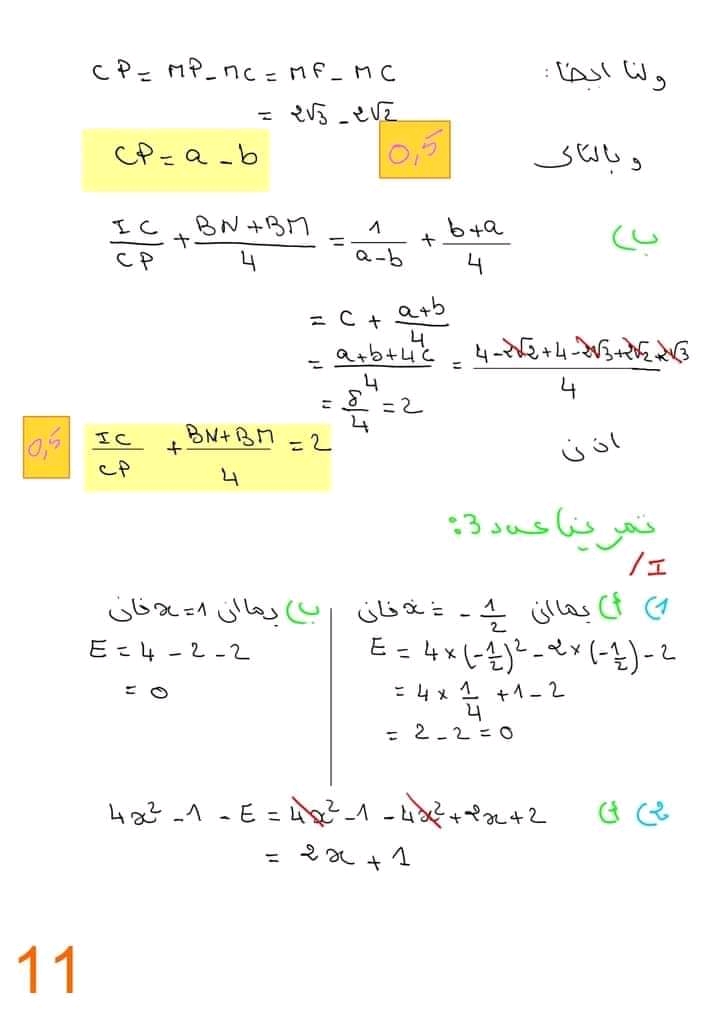 ولنا ايضا: CP = MP - MC = MF - MC
= 2√3 - 2√2
وبالتالي CP = a - b 0,5
ب) IC/CP + (BN + BM)/4 = 1/(a-b) + (b+a)/4
= c + (a+b)/4
= (a+b+4c)/4 = (4-2√2+4-2√3+2√2+2√3)/4
= 8/4 = 2
اذن IC/CP + (BN+BM)/4 = 2 0,5
تمرين عدد 3:
I/
1) أ) بما ان x = -1/2 فان
E = 4×(-1/2)² - 2×(-1/2) - 2
= 4 × 1/4 + 1 - 2
= 2 - 2 = 0
ب) بما ان x = 1 فان
E = 4 - 2 - 2
= 0
2) أ) 4x² - 1 - E = 4x² - 1 - 4x² + 2x + 2
= 2x + 1
11